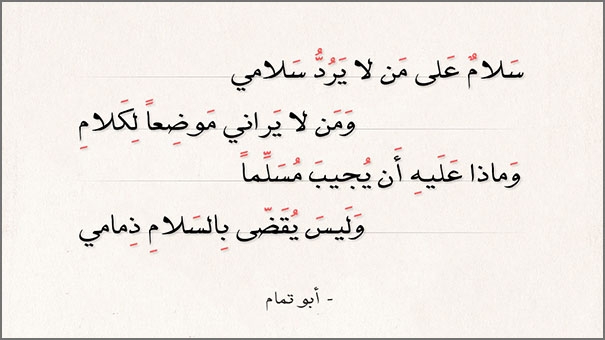 سَلامٌ عَلى مَن لا يَرُدُّ سَلامي
وَمَن لا يَراني مَوضِعاً لِكَلامِ
وَماذا عَلَيهِ أَن يُجيبَ مُسَلِّماً
وَلَيسَ يُقَضّى بِالسَلامِ ذِمامي
- أبو تمام